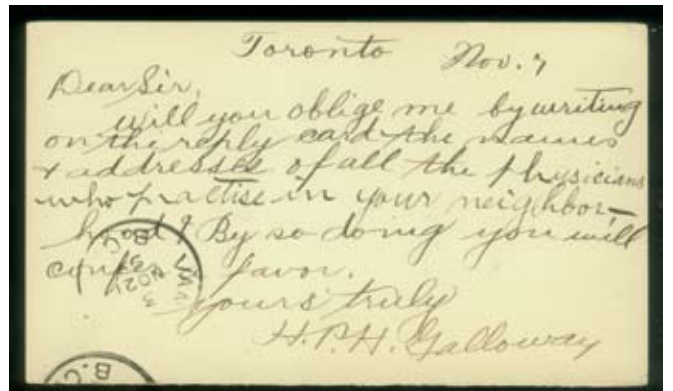 Toronto Nov. 7
Dear Sir,
will you oblige me by writing
on the reply card the names
+ addresses of all the Physicians
who practise in your neighbor-
hood? By so doing you will
confer favor.
yours truly
H.P.H. Galloway
B.C.